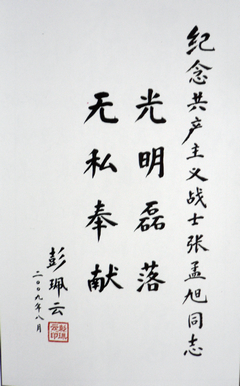 纪念共产主义战士张孟旭同志
光明磊落
无私奉献
彭珮云
二〇〇九年八月